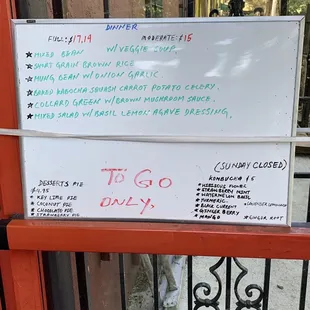 DINNER
FULL: $17.19 MODERATE: $15
★ MIXED BEAN W/ VEGGIE SOUP
★ SHORT GRAIN BROWN RICE
★ MUNG BEAN W/ ONION GARLIC
★ BAKED KABOCHA SQUASH CARROT POTATO CELERY.
★ COLLARD GREEN W/ BROWN MUSHROOM SAUCE.
★ MIXED SALAD W/ BASIL LEMON AGAVE DRESSING,
TO GO
ONLY,
DESSERTS PIE
$4.95
★ KEY LIME PIE
★ COCONUT PIE
★ CHOCOLATE PIE
★ STRAWBERRY
(SUNDAY CLOSED)
KOMBUCHA $5
★ HIBISCUS
★ STRAWBERRY MINT
★ WATERMELON BASIL
★ TURMERIC
★ BLACK CURRENT
★ GINGER BERRY
★ MANGO
★ GINGER ROOT